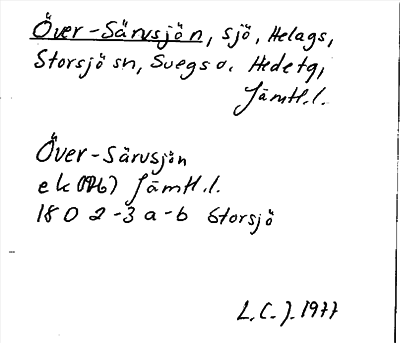 Över-Särvsjön, sjö, Helags,
Storsjö sn, Svegs o. Hede tg,
Jämtl.l.
Över-Särvsjön
ek (1976) Jämtl.l.
18 0 2-3 a-b Storsjö
L.C.J. 1977